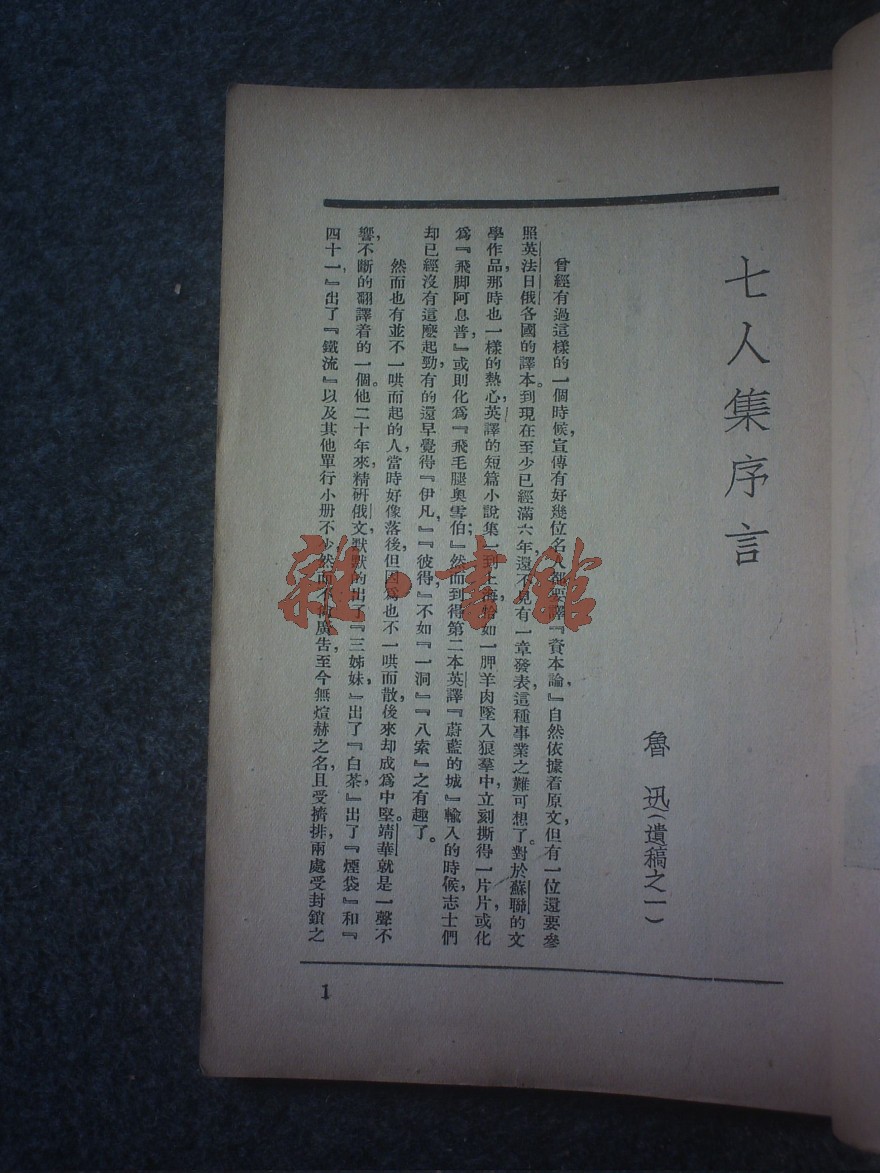 七人集序言
魯迅(遺稿之一)
曾經有過這樣的一個時候，宣傳有好幾位名人都要譯『資本論，』自然依據着原文，但有一位還要參
照英法日俄各國的譯本。到現在至少已經滿六年，還不見有一章發表，這種事業之難可想了。對於蘇聯的文
學作品，那時也一樣的熱心，英譯的短篇小說集一到上海，恰如一胛羊肉墜入狼羣中，立刻撕得一片片，或化
爲『飛脚阿息普，』或則化爲『飛毛腿奧雪伯；』然而到得第二本英譯『蔚藍的城』輸入的時候，志士們
却已經沒有這麽起勁，有的還早覺得『伊凡，』『彼得，』不如『一洞』『八索』之有趣了。
然而也有並不一哄而起的人，當時好像落後，但因爲也不一哄而散，後來却成爲中堅。靖華就是一聲不
響，不斷的翻譯着的一個。他二十年來，精研俄文，默默的出了『三姊妹，』出了『白茶，』出了『煙袋』和『
四十一，』出了『鐵流』以及其他單行小册不少，然而不廣告，至今無煊赫之名，且受擠排，兩處受封鎖之
1
雜·書館